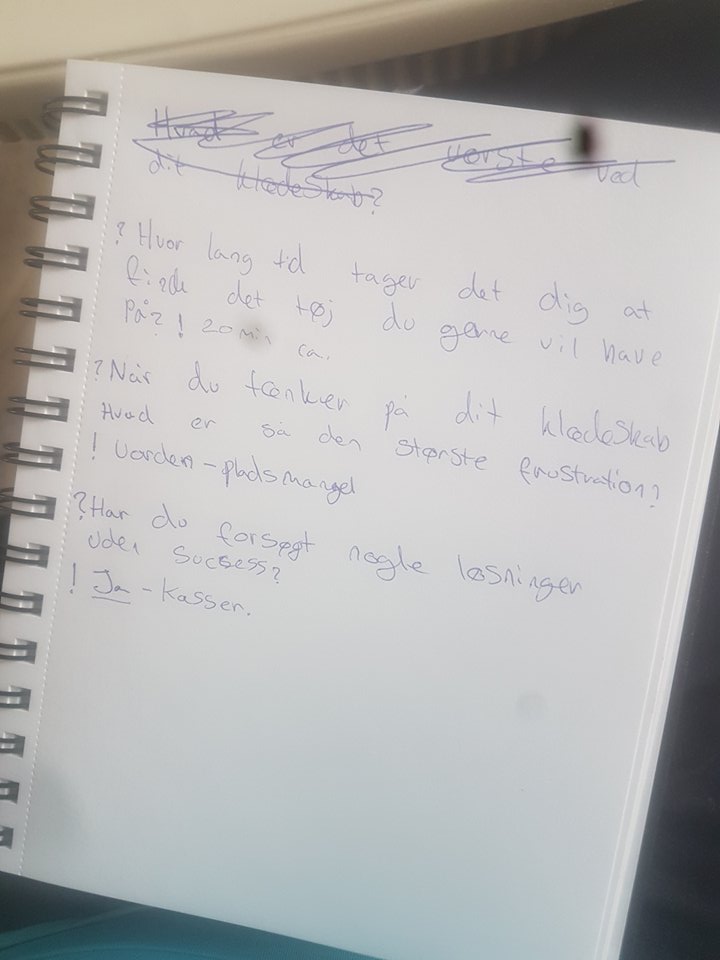 Hvad er det værste ved
dit klædeskab?
? Hvor lang tid tager det dig at
finde det tøj du gerne vil have
På? ! 20 min
ca.
? Når du tænker på dit klædeskab
Hvad er så den største frustration?
! Uorden - pladsmangel
? Har du forsøgt nogle løsninger
uden success?
! Ja - kasser.